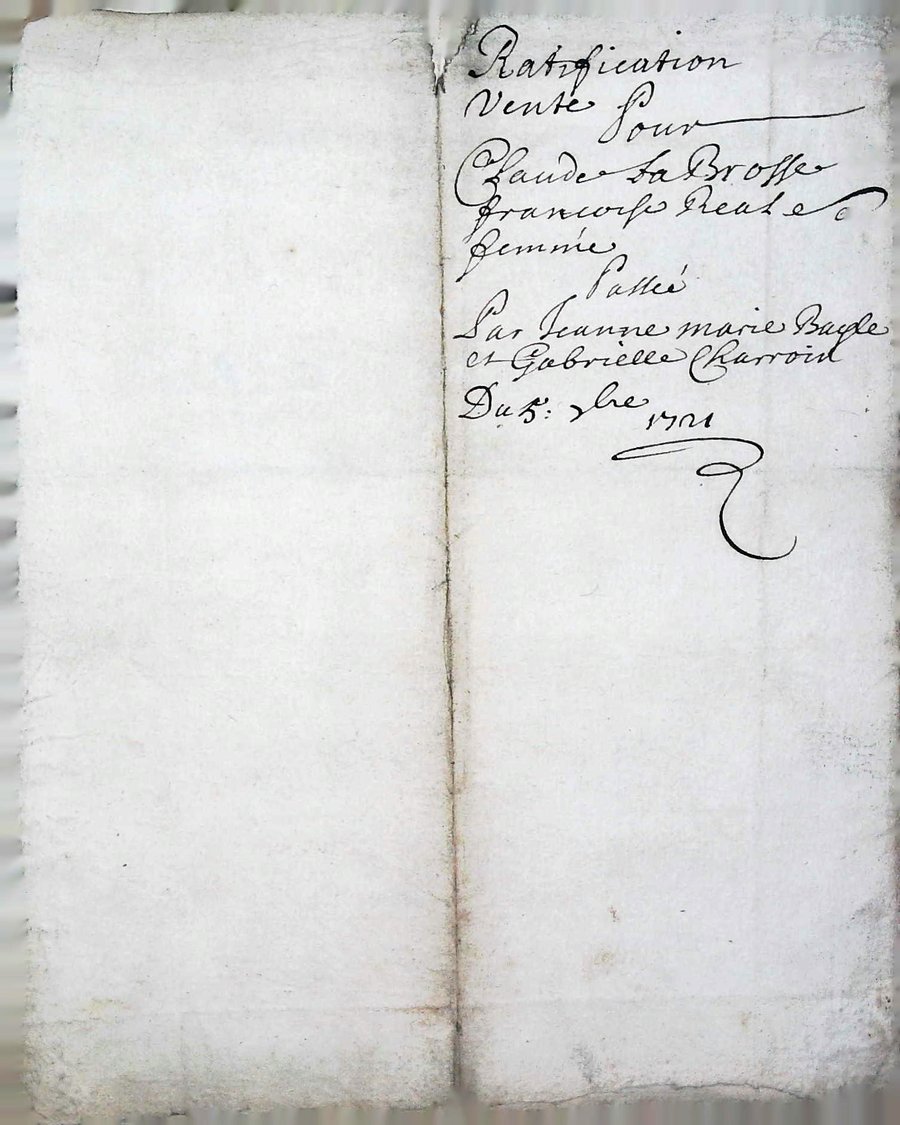 Ratification
Vente Pour
Claude La Brosse
francoise Reale
femme
Passeé
Par Jeanne marie Bayle
et Gabrielle Charroin
Du 5: 7bre
1721